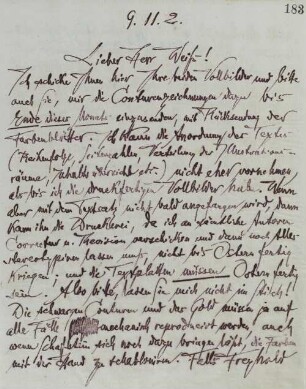 183
9. 11. 2.
Lieber Herr Weiß!
Ich schicke Ihnen hier Ihre beiden Vollbilder und bitte
auch Sie, mir die Conturenzeichnungen dazu bis
Ende dieses Monats einzusenden, mit Rücksendung der
Farbenblätter. Ich kann die Anordnung der Texte
(Reihenfolge, Seitenzahlen, Verteilung der Illustrations-
räume, Inhaltsübersicht etc.) nicht eher vornehmen,
als bis ich die druckfertigen Vollbilder habe. Wenn
aber mit dem Textsatz nicht bald angefangen wird, dann
kann ihn die Druckerei, da ich an sämtliche Autoren
Correctur u. Revision verschicken und dann noch alles
stereotypieren lassen muß, nicht bis Ostern fertig
kriegen; und die Textplatten müssen Ostern fertig
sein. Also bitte, lassen Sie mich nicht im Stich!
Die schwarzen Conturen und das Gold müssen ja auf
alle Fälle mechanisch reproduciert werden, auch
wenn Schafstein sich noch dazu bringen läßt, die Farben
mit der Hand zu schablonieren. Falls Freyhold